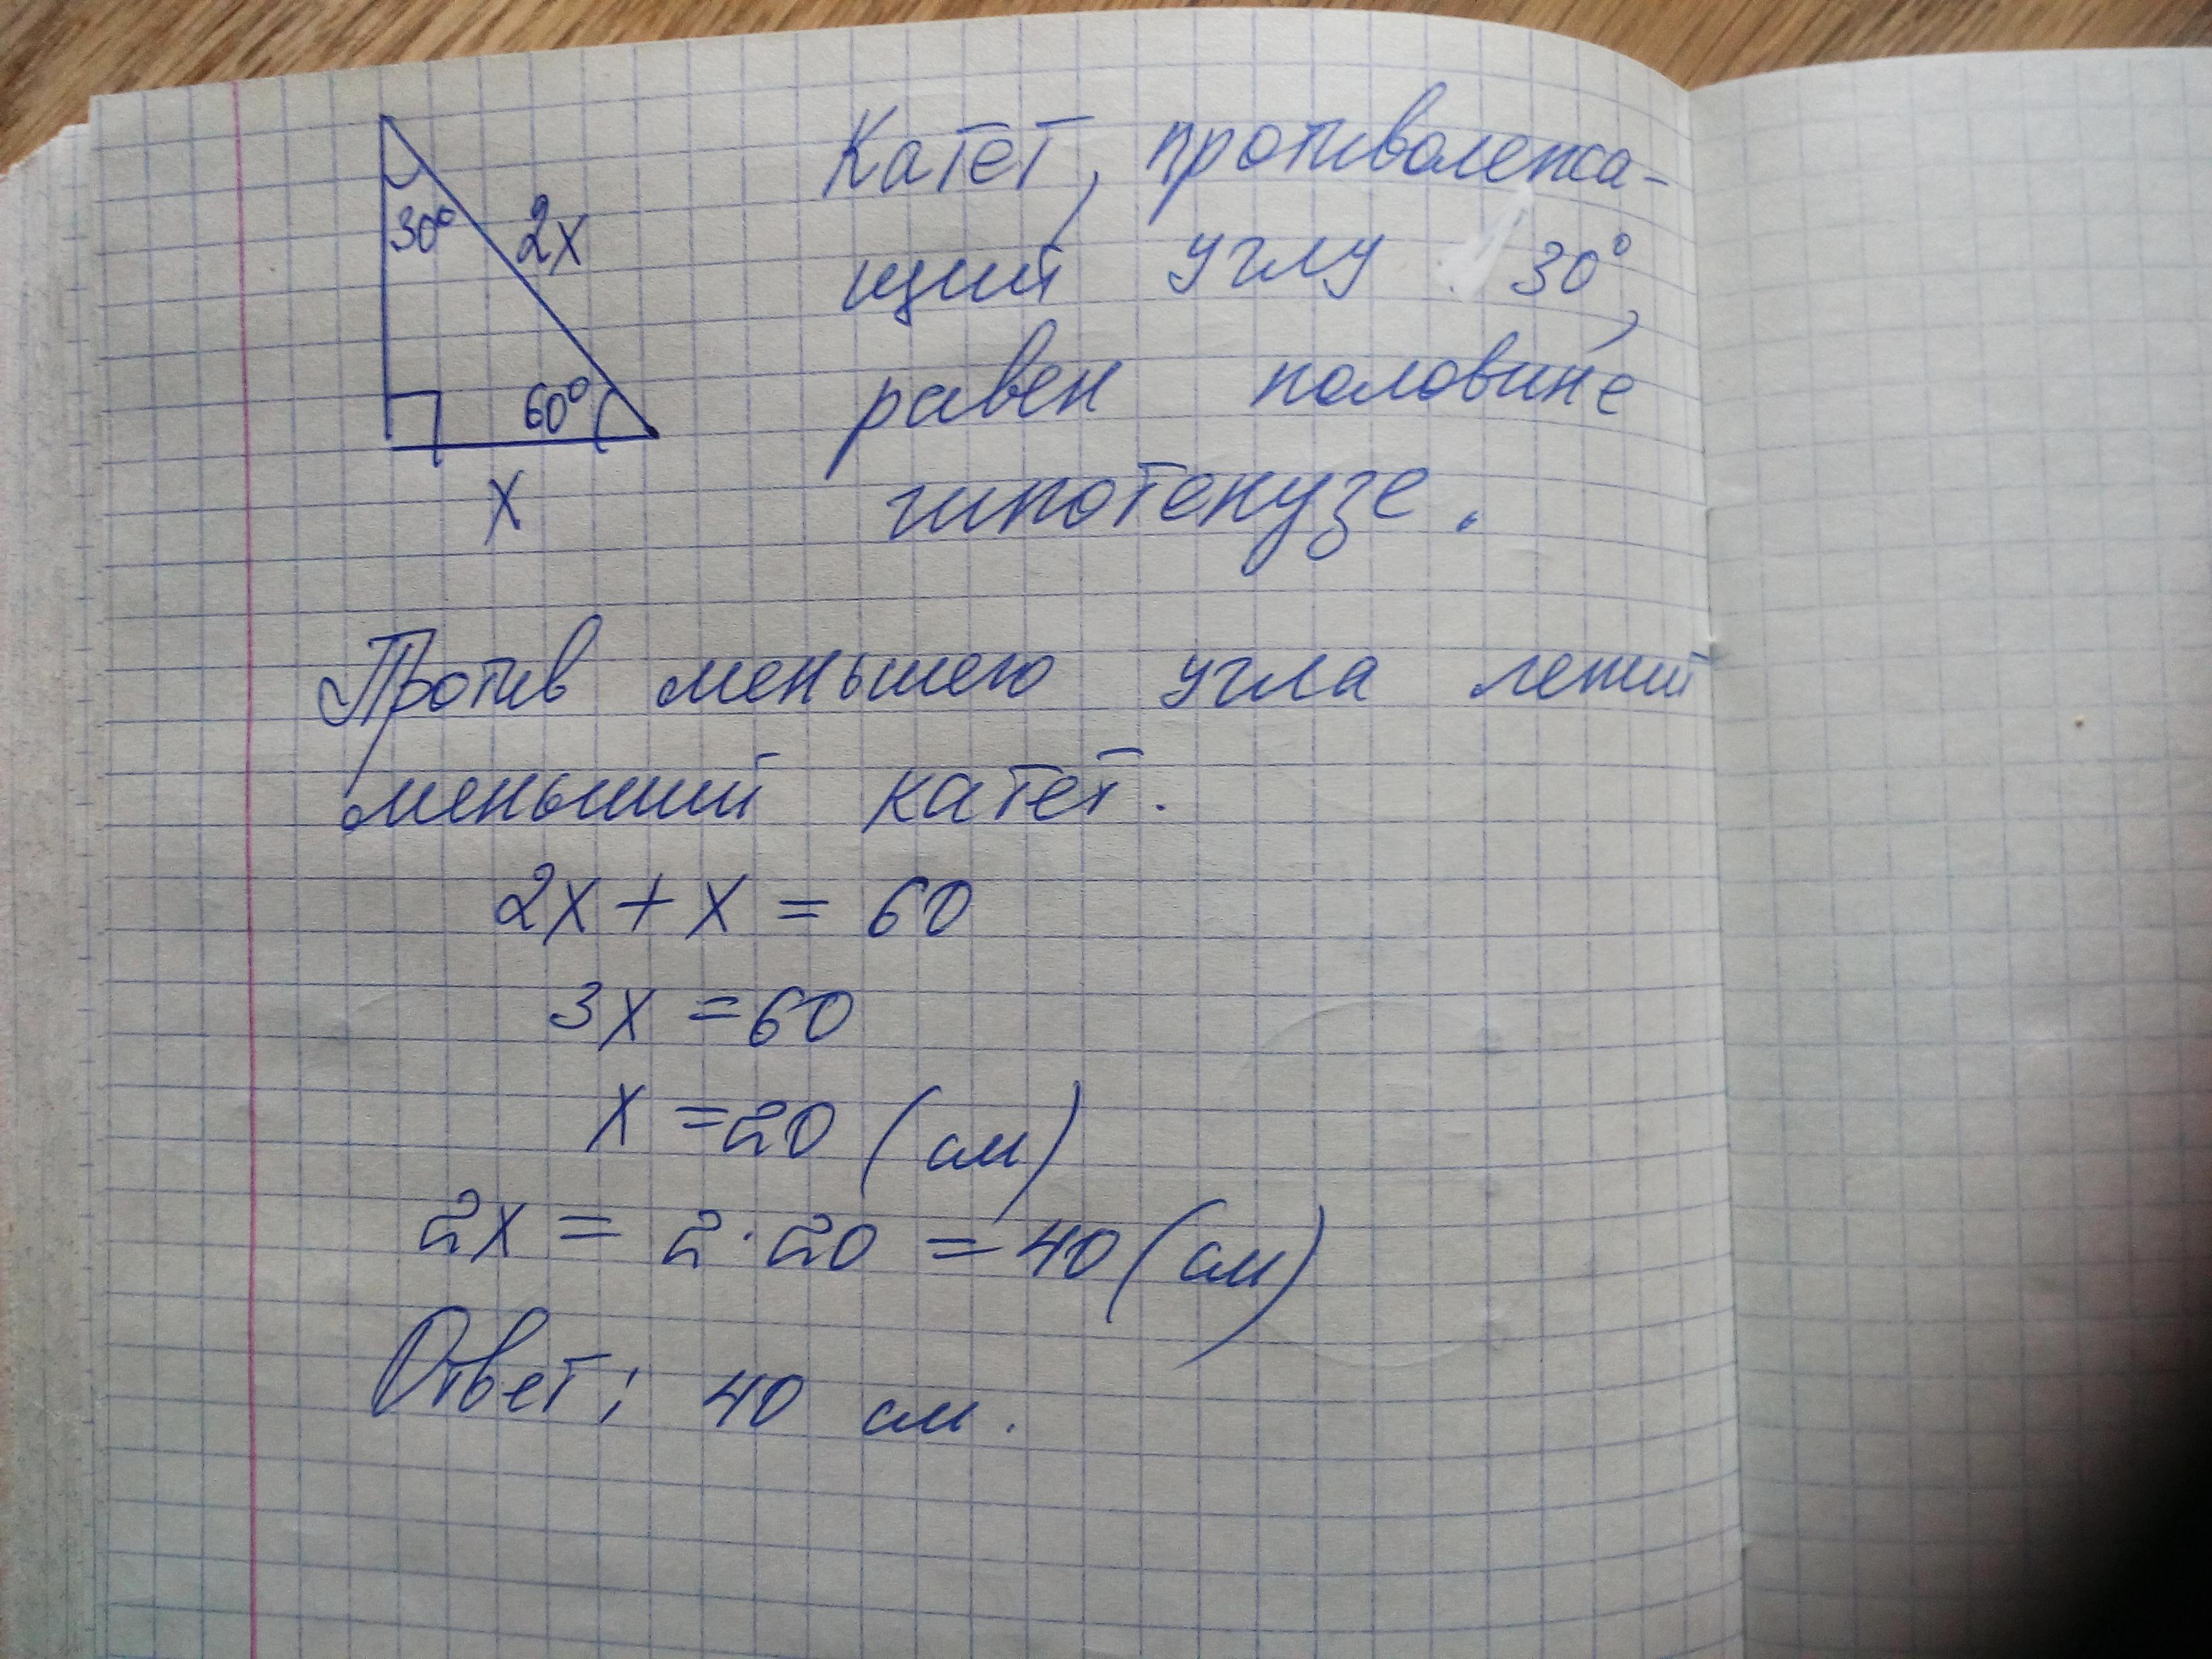 30°
2x
60°
x
Катет, противолежа-
щий углу 30°,
равен половине
гипотенузе.
Против меньшего угла лежит
меньший катет.
2x + x = 60
3x = 60
x = 20 (см)
2x = 2·20 = 40 (см)
Ответ: 40 см.